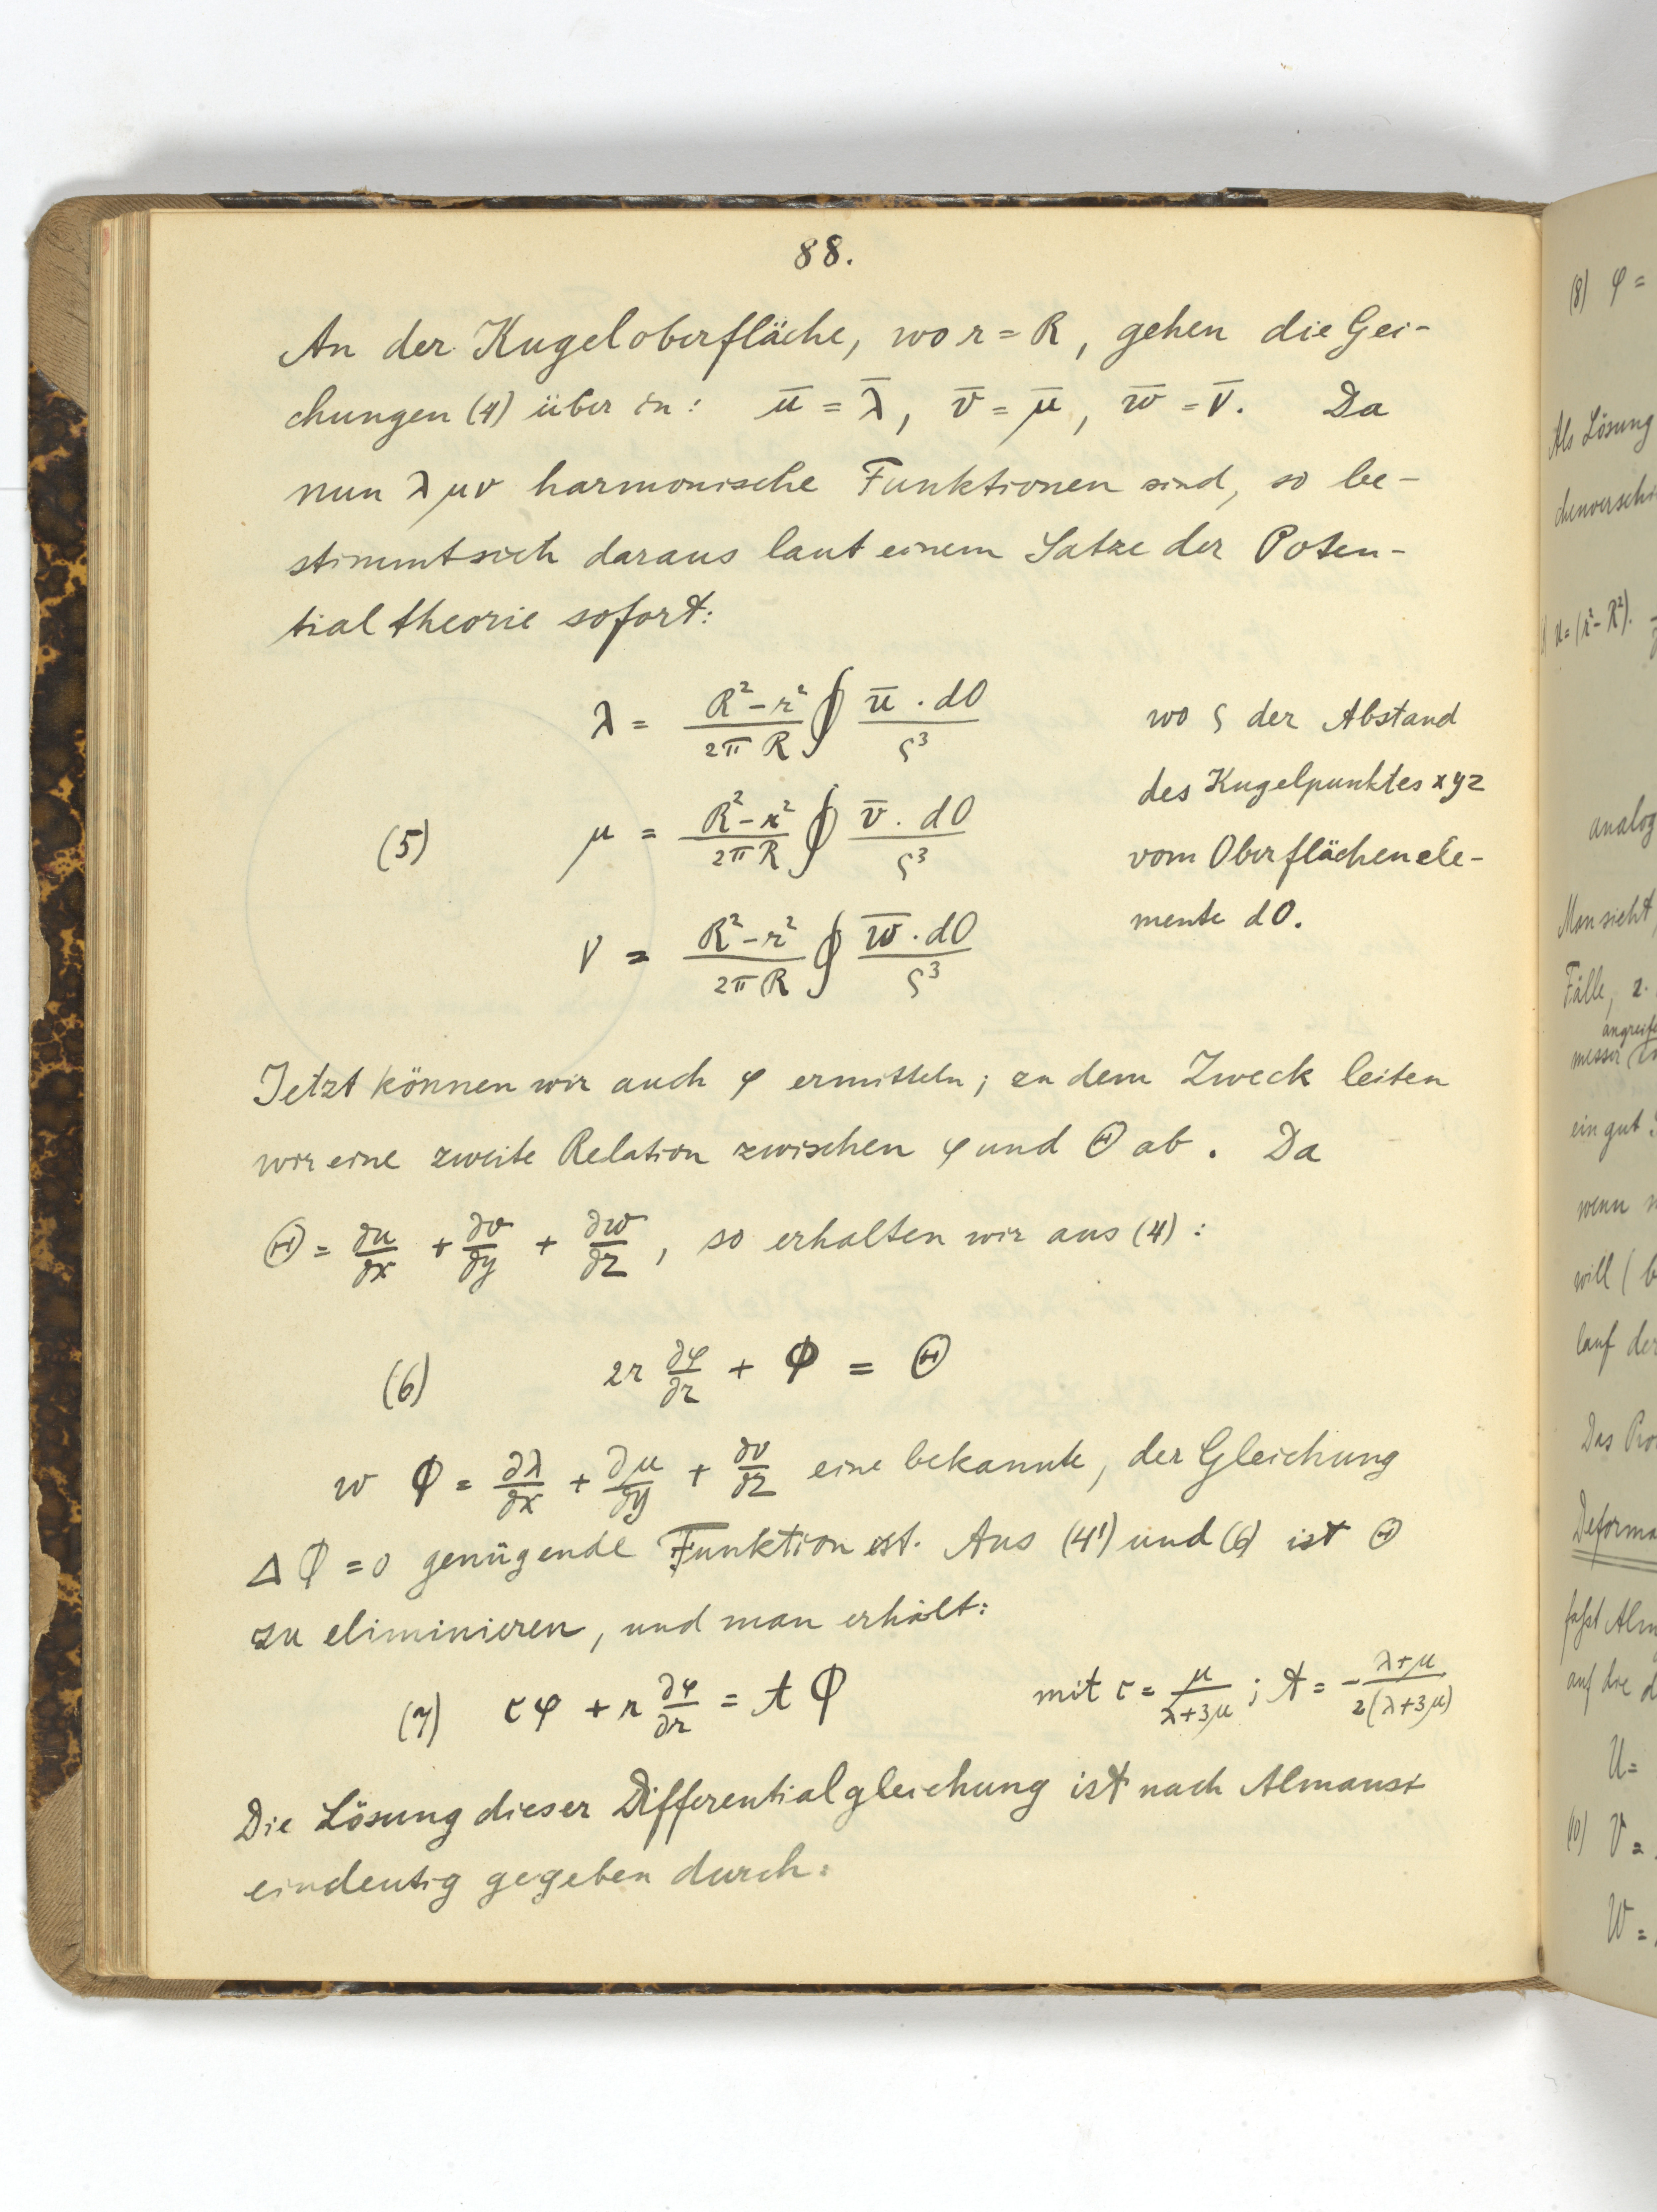 88.
An der Kugeloberfläche, wo r = R, gehen die Glei-
chungen (4) über in: ū = λ̄, v̄ = μ̄, w̄ = ν̄. Da
nun λ μ ν harmonische Funktionen sind, so be-
stimmt sich daraus laut einem Satze der Poten-
tialtheorie sofort:
λ = (R² - r²)/(2π R) ∮ (ū . dO)/ς³ wo ς der Abstand
des Kugelpunktes x y z
(5) μ = (R² - r²)/(2π R) ∮ (v̄ . dO)/ς³ vom Oberflächenele-
mente dO.
ν = (R² - r²)/(2π R) ∮ (w̄ . dO)/ς³
Jetzt können wir auch φ ermitteln; zu dem Zweck leiten
wir eine zweite Relation zwischen φ und Θ ab. Da
Θ = ∂u/∂x + ∂v/∂y + ∂w/∂z, so erhalten wir aus (4):
(6) 2r ∂φ/∂r + Φ = Θ
w Φ = ∂λ/∂x + ∂μ/∂y + ∂ν/∂z eine bekannte, der Gleichung
Δ Φ = 0 genügende Funktion ist. Aus (4') und (6) ist Θ
zu eliminieren, und man erhält:
(7) τφ + r ∂φ/∂r = t Φ mit τ = μ/(λ+3μ); t = - (λ+μ)/(2(λ+3μ))
Die Lösung dieser Differentialgleichung ist nach Almansi
eindeutig gegeben durch:
(8) φ =
Als Lösung
u = (r² - R²).
analog
Man sieht,
Fälle, z.
angreife
messer
ein gut
wenn
will (b
lauf der
Das Pro
Deforma
auf die d
U =
(10) V =
W =